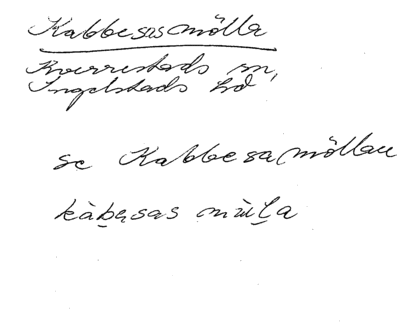 Kabbesasmölla
Kverrestads sn,
Ingelstads hd
se Kabbesa(möllan
kàbesas mùla